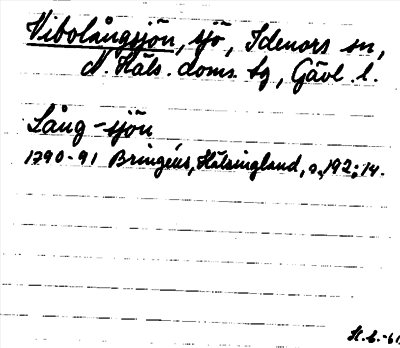 Vibolångsjön, sjö, Idenors sn,
N. Häls. doms. tg, Gävl. l.
Lång-sjön
1790-91 Bringéus, Hälsingland, s. 192; 14.